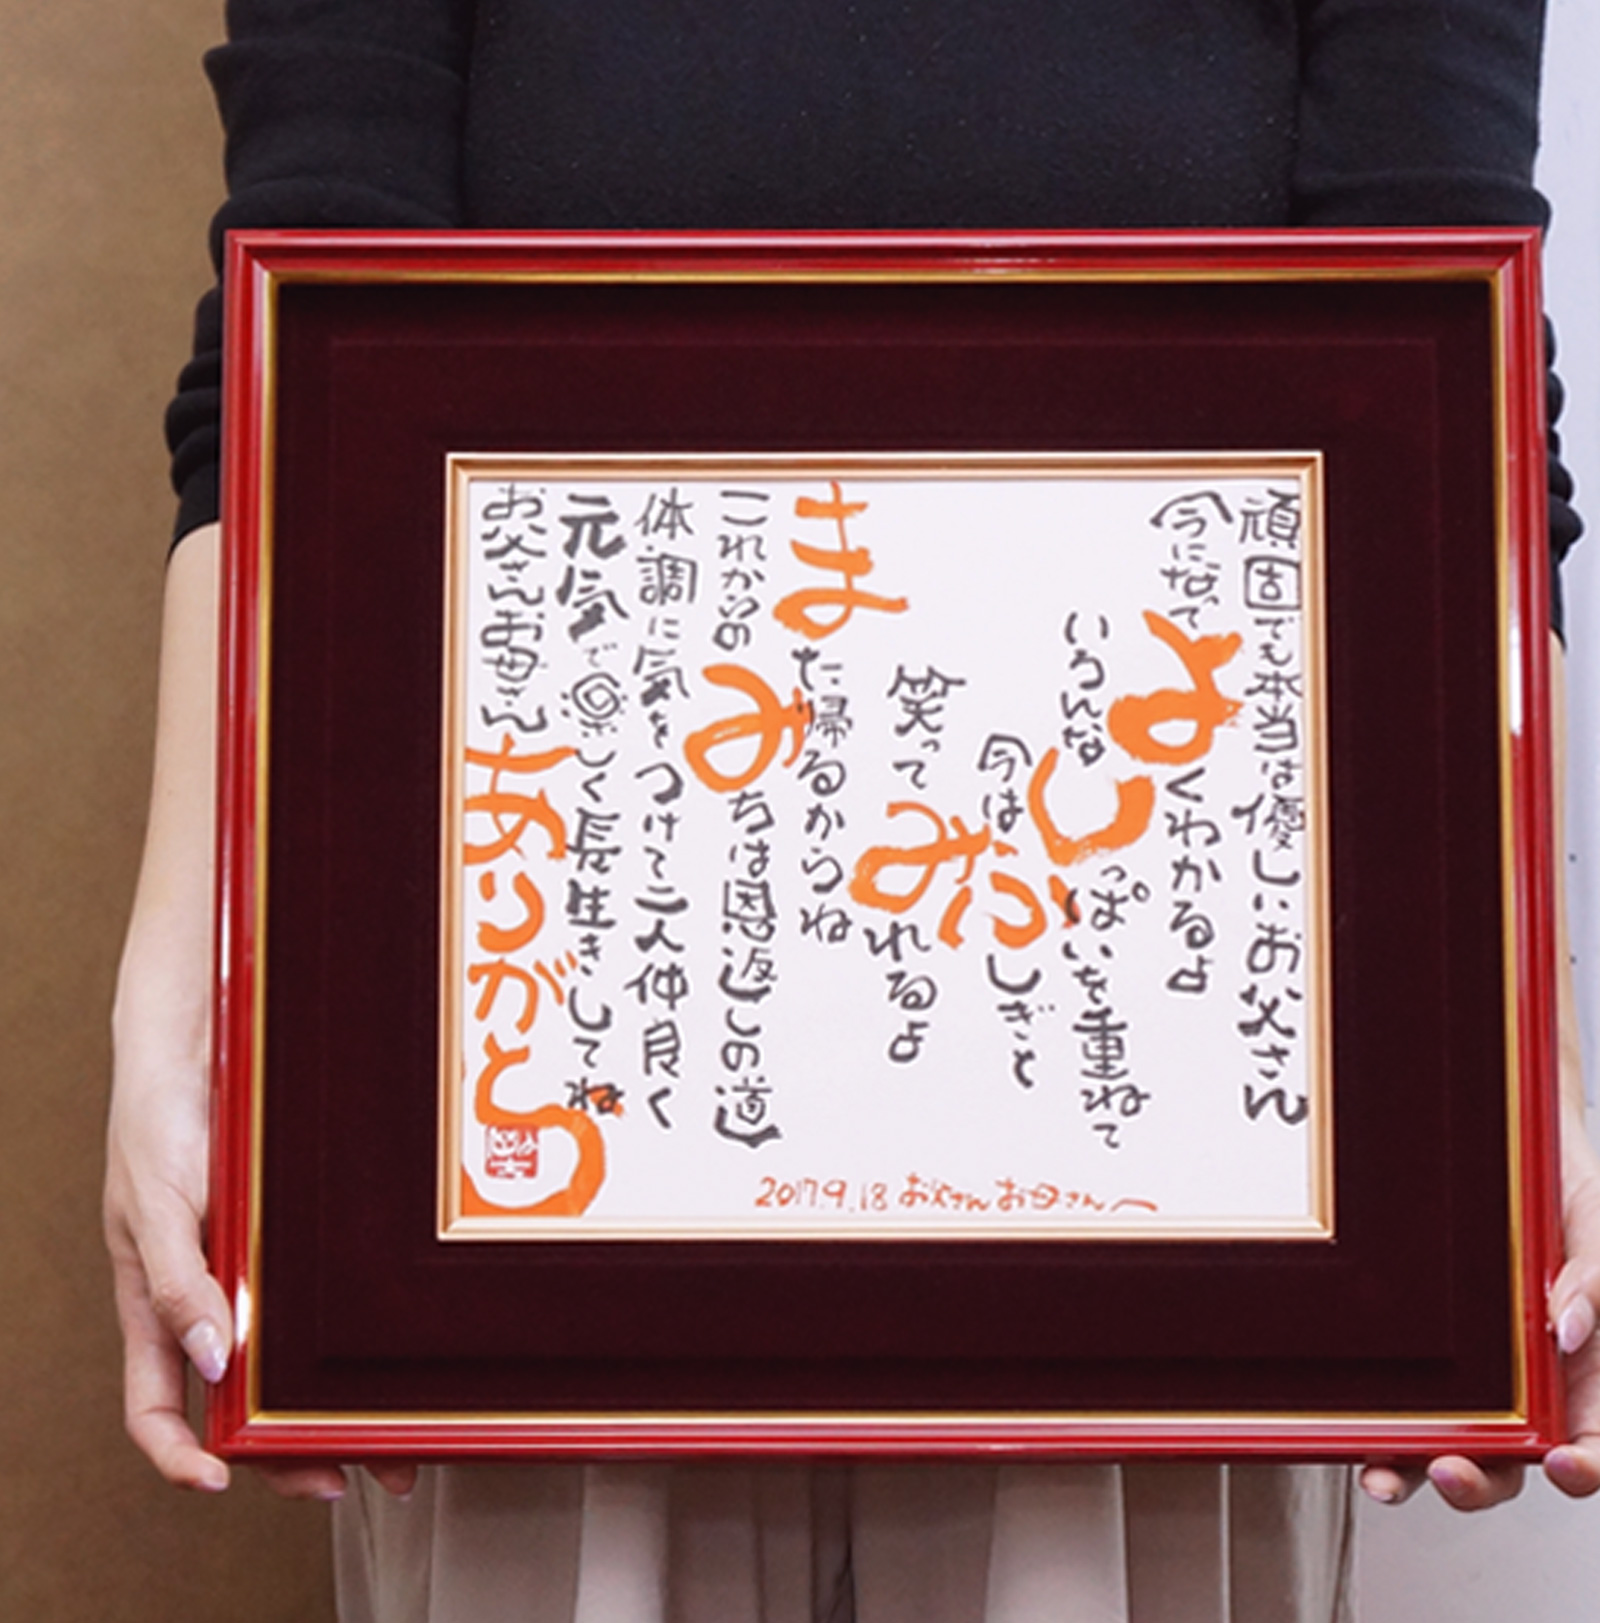 頑固でも本当は優しいお父さん
今になってよくわかるよ
いろんないっぱいを重ねて
今はふしぎと
笑ってみれるよ
また帰るからね
これからのみちは恩返しの道
体調に気をつけて二人仲良く
元気で楽しく長生きしてね
お父さんお母さんありがとう
2017.9.18 お父さんお母さんへ